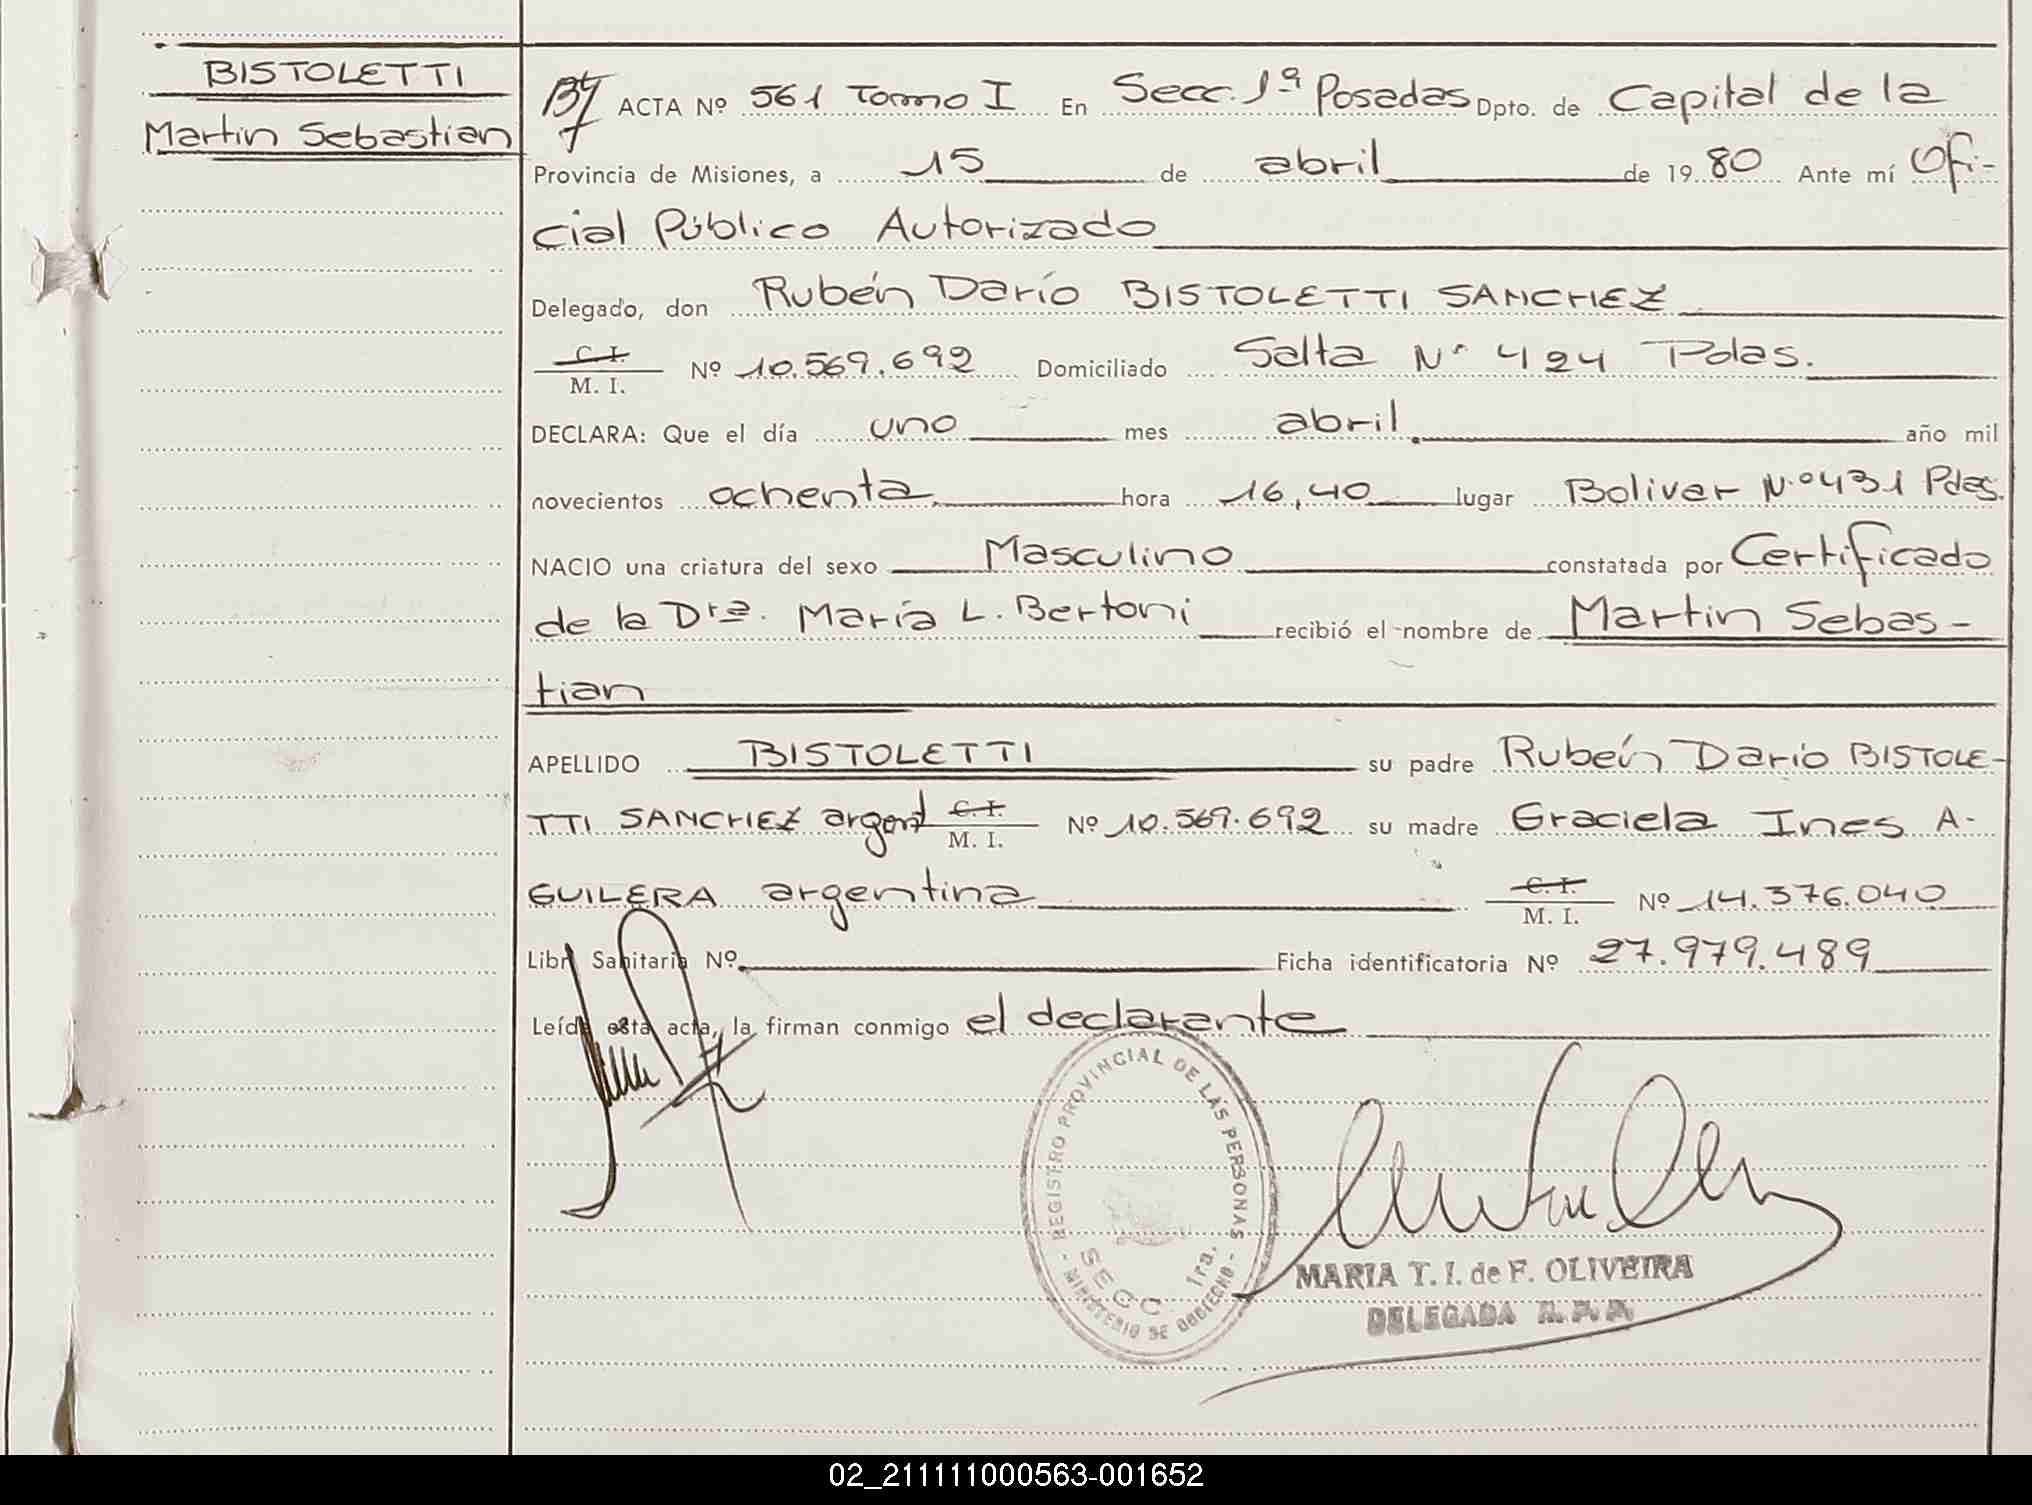 BISTOLETTI
Martin Sebastian
ACTA Nº 561 Tomo I En Secc. 1ª Posadas Dpto. de Capital de la
Provincia de Misiones, a 15 de abril de 1980 Ante mí Ofi-
cial Público Autorizado
Delegado, don Rubén Darío BISTOLETTI SANCHEZ
C. I.
M. I. Nº 10.569.692 Domiciliado Salta Nº 424 Pdas.
DECLARA: Que el día uno mes abril año mil
novecientos ochenta hora 16,40 lugar Bolivar Nº 431 Pdas.
NACIO una criatura del sexo Masculino constatada por Certificado
de la Dra. María L. Bertoni recibió el nombre de Martin Sebas-
tian
APELLIDO BISTOLETTI su padre Rubén Darío BISTOLE-
TTI SANCHEZ argent C. I.
M. I. Nº 10.569.692 su madre Graciela Ines A-
GUILERA argentina C. I.
M. I. Nº 14.376.040
Libr Sanitaria Nº Ficha identificatoria Nº 27.979.489
Leída esta acta, la firman conmigo el declarante
REGISTRO PROVINCIAL DE LAS PERSONAS
SECC. 1ra.
- MINISTERIO DE GOBIERNO -
MARIA T. I. de F. OLIVEIRA
DELEGADA R. P. P.
02_211111000563-001652